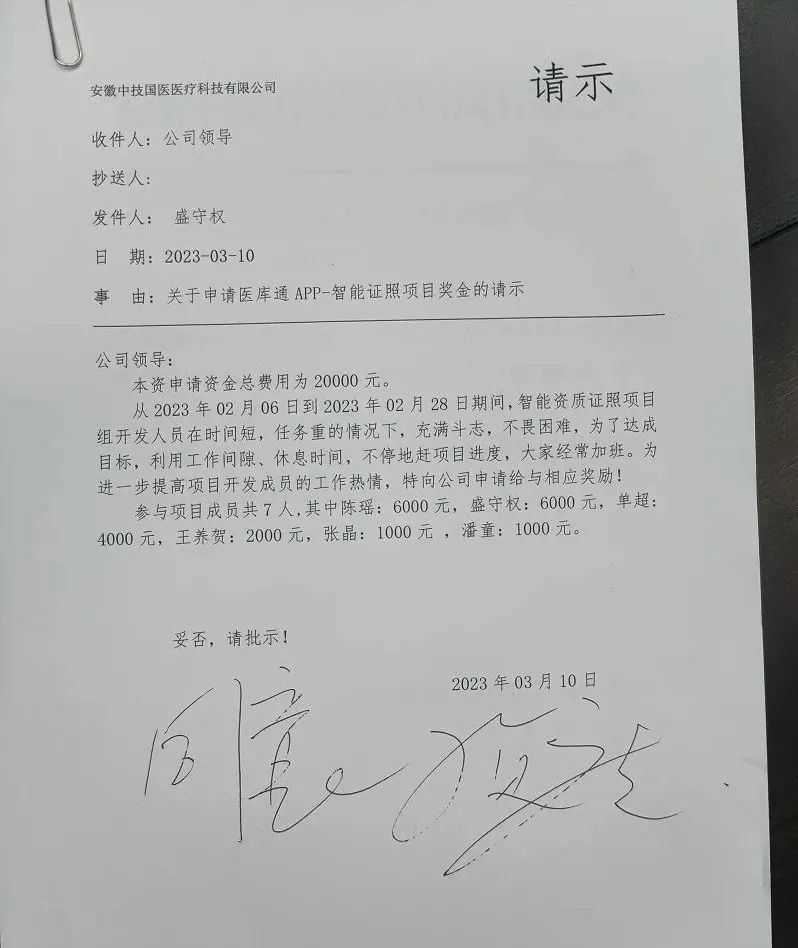 安徽中技国医医疗科技有限公司
请示
收件人：公司领导
抄送人:
发件人： 盛守权
日 期：2023-03-10
事 由：关于申请医库通 APP-智能证照项目奖金的请示
公司领导：
本资申请资金总费用为 20000 元。
从 2023 年 02 月 06 日到 2023 年 02 月 28 日期间，智能资质证照项目
组开发人员在时间短，任务重的情况下，充满斗志，不畏困难，为了达成
目标，利用工作间隙、休息时间，不停地赶项目进度，大家经常加班。为
进一步提高项目开发成员的工作热情，特向公司申请给与相应奖励！
参与项目成员共 7 人,其中陈瑶：6000 元，盛守权：6000 元，单超：
4000 元，王养贺：2000 元，张晶：1000 元 ，潘童：1000 元。
妥否，请批示！
2023 年 03 月 10 日
同意